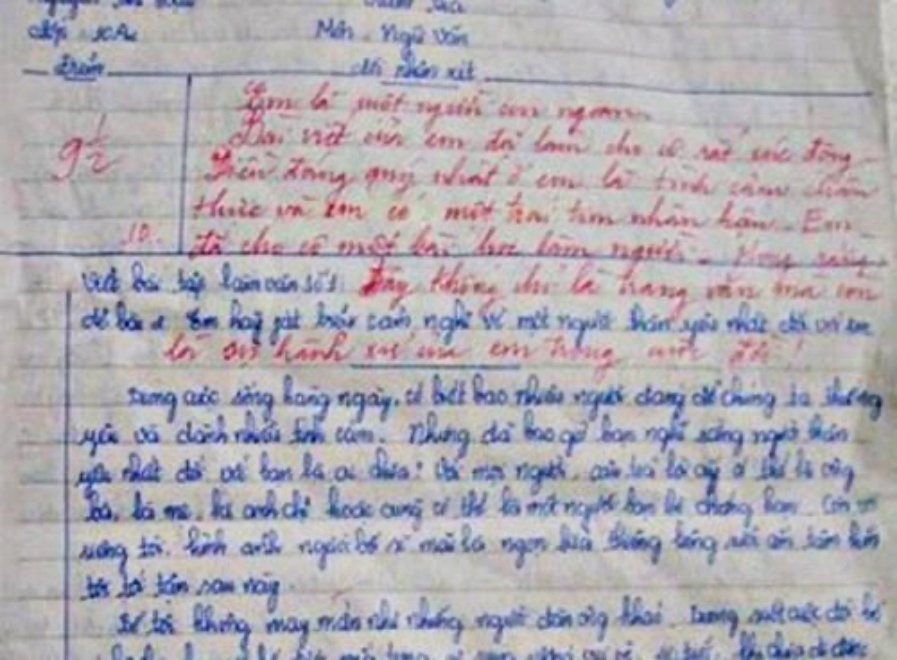 Lớp 10A
Môn: Ngữ Văn
Điểm
Lời nhận xét
9 1/2
10
Em là một người con ngoan.
Bài viết của em đã làm cho cô rất xúc động.
Điều đáng quý nhất ở em là tình cảm chân
thực và em có một trái tim nhân hậu. Em
đã cho cô một bài học làm người. Mong rằng
Viết bài tập làm văn số 1
đây không chỉ là trang văn mà còn
đề bài: Em hãy phát biểu cảm nghĩ về một người thân yêu nhất đối với em
là sự hành xử của em trong cuộc đời!
Trong cuộc sống hàng ngày, có biết bao nhiêu người đáng để chúng ta thương
yêu và dành nhiều tình cảm. Nhưng đã bao giờ bạn nghĩ rằng người thân
yêu nhất đối với bạn là ai chưa? Với mọi người, câu trả lời ấy có thể là ông
bà, là mẹ, là anh chị hoặc cũng có thể là một người bạn bè chẳng hạn. Còn với
riêng tôi, hình ảnh người bố sẽ mãi là ngọn lửa thiêng liêng sưởi ấm tâm hồn
tôi tới tận sau này.
Bố tôi không may mắn như những người đàn ông khác. Trong suốt cuộc đời bố